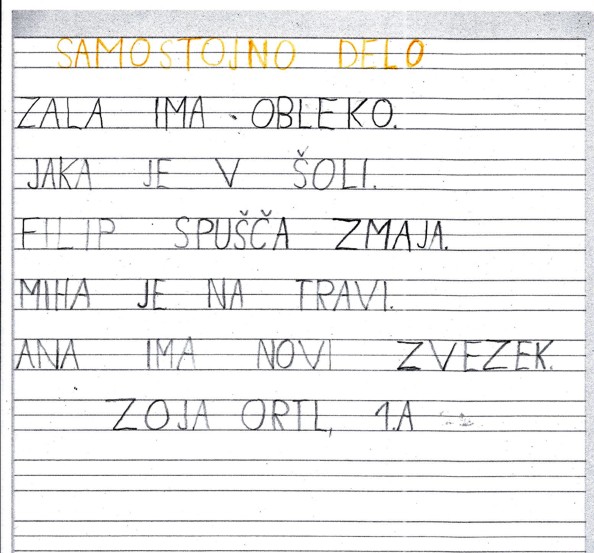 SAMOSTOJNO DELO
ZALA IMA OBLEKO.
JAKA JE V ŠOLI.
FILIP SPUŠČA ZMAJA.
MIHA JE NA TRAVI.
ANA IMA NOVI ZVEZEK.
ZOJA ORTL, 1.A